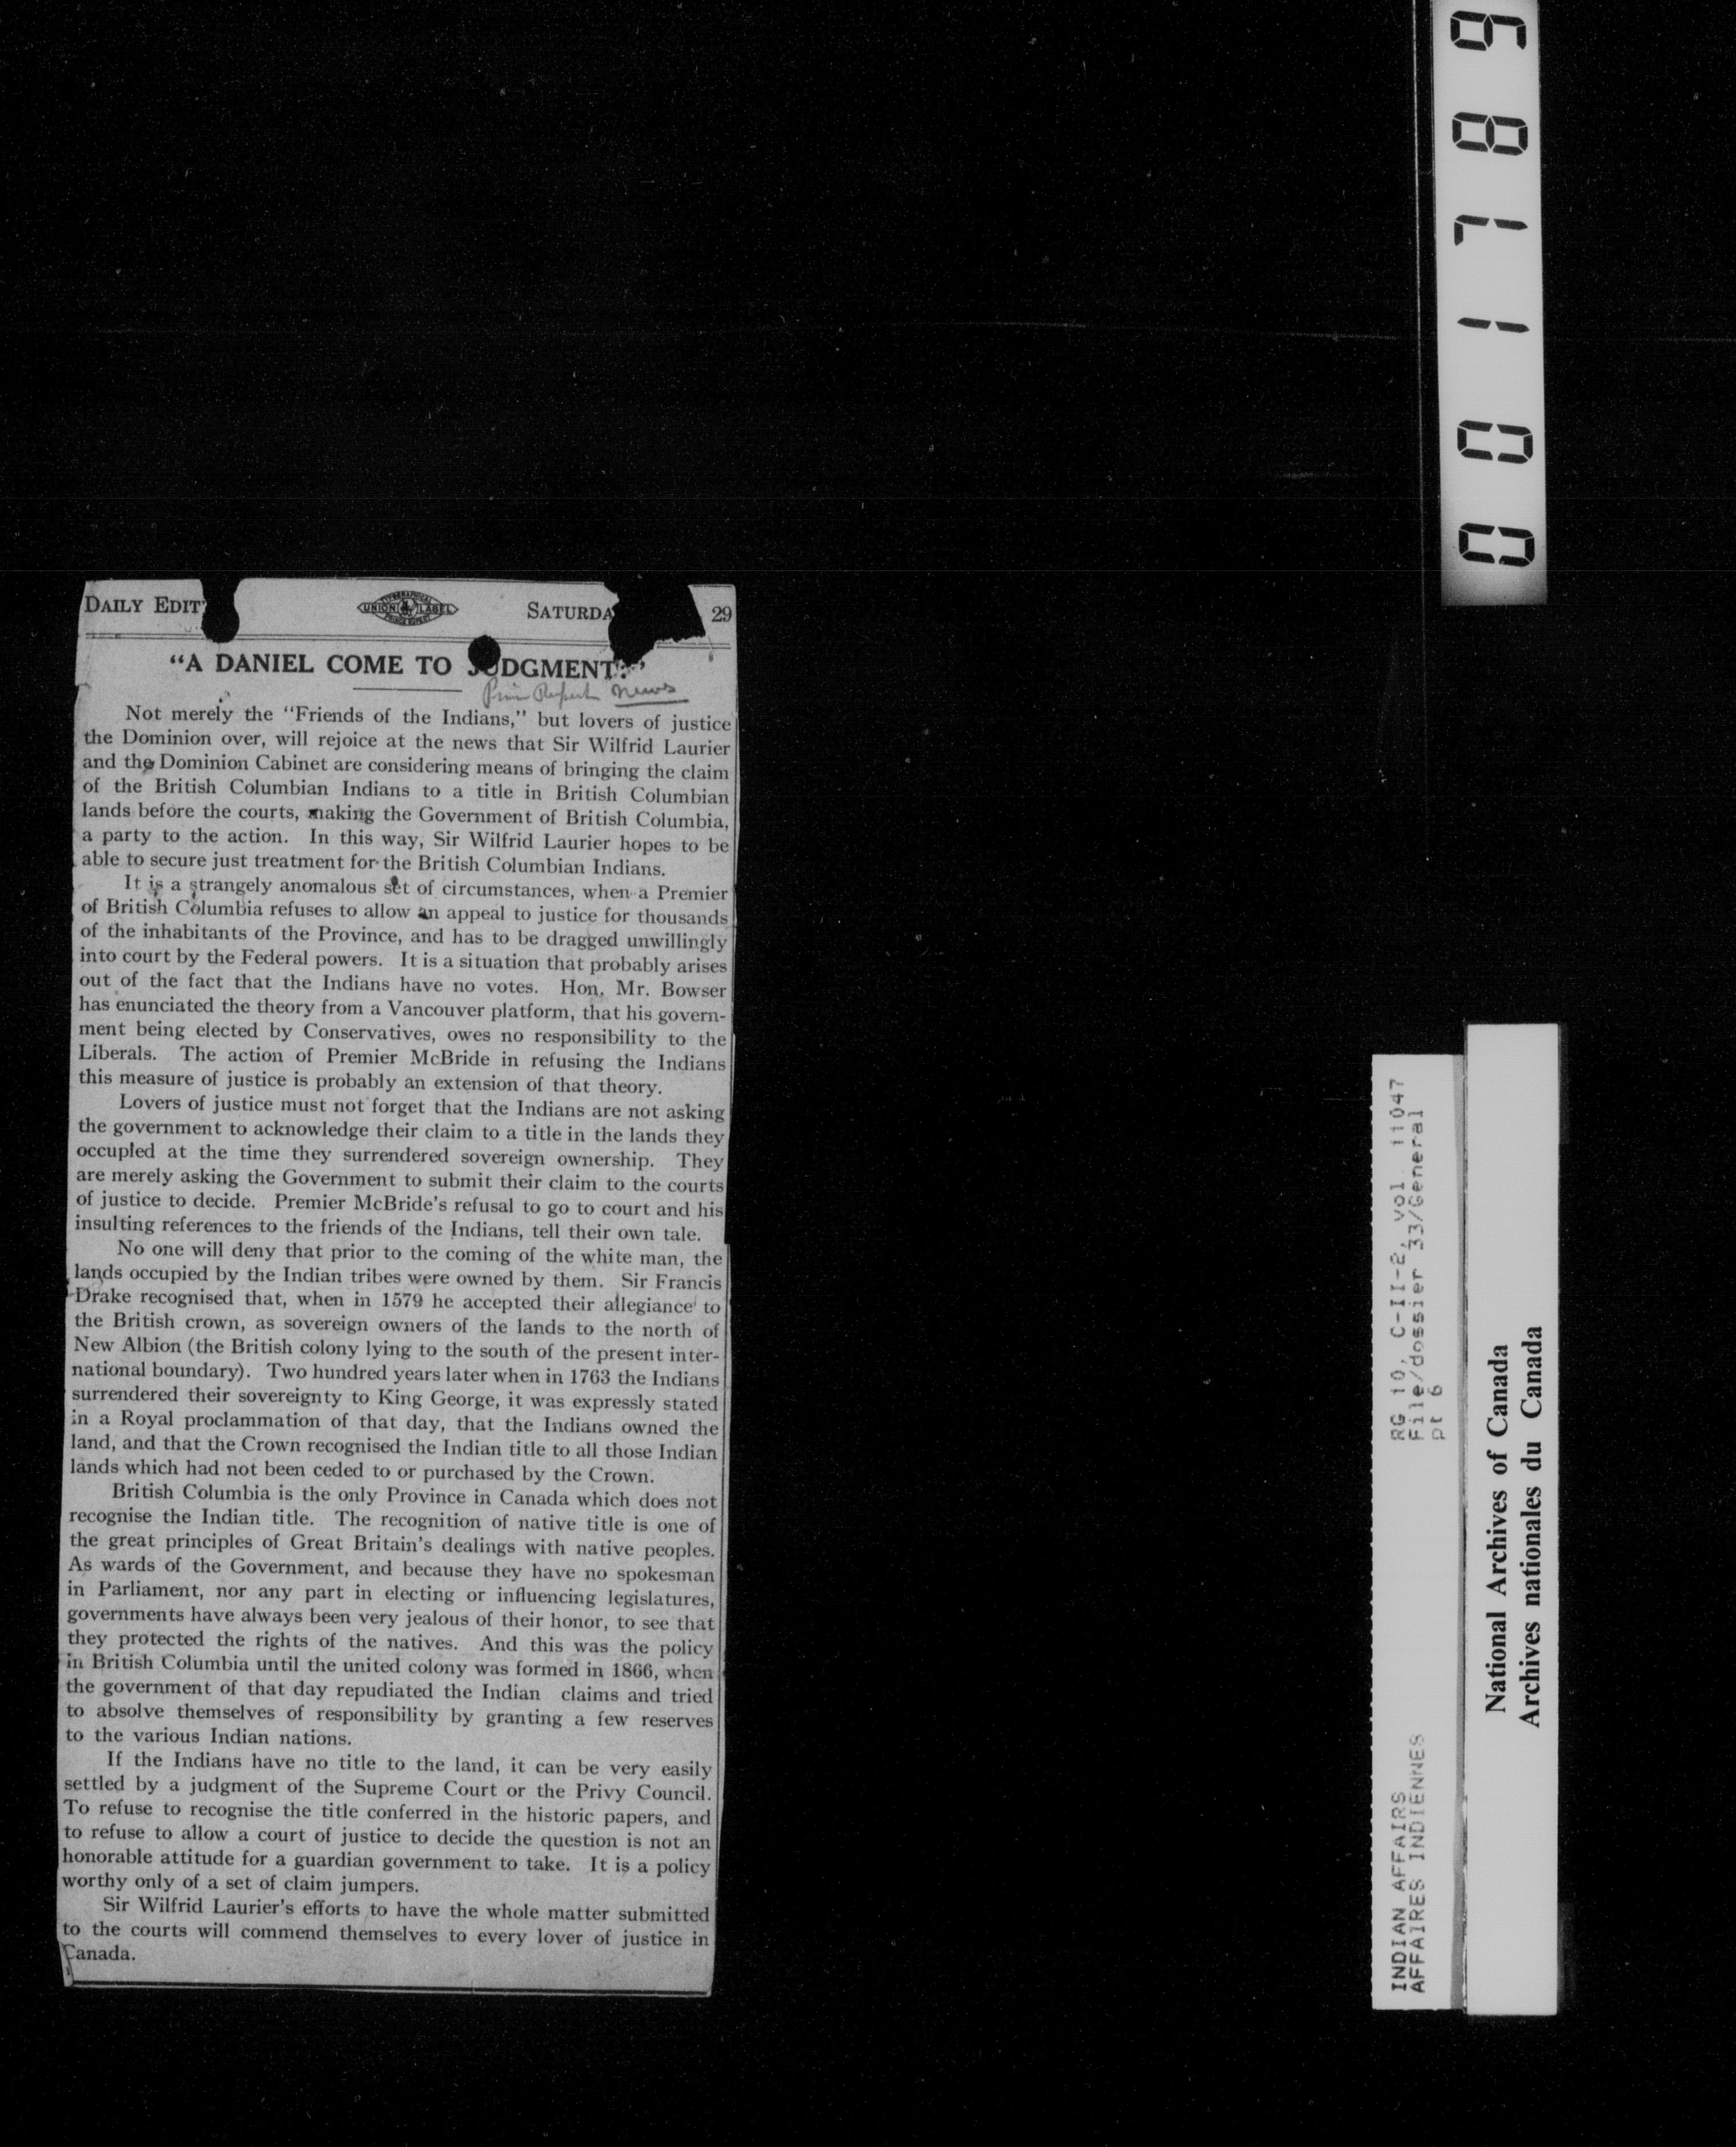 DAILY EDIT
TYPOGRAPHICAL
UNION LABEL
PRINCE RUPERT
SATURDA 29
"A DANIEL COME TO JUDGMENT."
Prince Rupert News
Not merely the "Friends of the Indians," but lovers of justice
the Dominion over, will rejoice at the news that Sir Wilfrid Laurier
and the Dominion Cabinet are considering means of bringing the claim
of the British Columbian Indians to a title in British Columbian
lands before the courts, making the Government of British Columbia,
a party to the action. In this way, Sir Wilfrid Laurier hopes to be
able to secure just treatment for the British Columbian Indians.
It is a strangely anomalous set of circumstances, when a Premier
of British Columbia refuses to allow an appeal to justice for thousands
of the inhabitants of the Province, and has to be dragged unwillingly
into court by the Federal powers. It is a situation that probably arises
out of the fact that the Indians have no votes. Hon. Mr. Bowser
has enunciated the theory from a Vancouver platform, that his govern-
ment being elected by Conservatives, owes no responsibility to the
Liberals. The action of Premier McBride in refusing the Indians
this measure of justice is probably an extension of that theory.
Lovers of justice must not forget that the Indians are not asking
the government to acknowledge their claim to a title in the lands they
occupied at the time they surrendered sovereign ownership. They
are merely asking the Government to submit their claim to the courts
of justice to decide. Premier McBride's refusal to go to court and his
insulting references to the friends of the Indians, tell their own tale.
No one will deny that prior to the coming of the white man, the
lands occupied by the Indian tribes were owned by them. Sir Francis
Drake recognised that, when in 1579 he accepted their allegiance to
the British crown, as sovereign owners of the lands to the north of
New Albion (the British colony lying to the south of the present inter-
national boundary). Two hundred years later when in 1763 the Indians
surrendered their sovereignty to King George, it was expressly stated
in a Royal proclammation of that day, that the Indians owned the
land, and that the Crown recognised the Indian title to all those Indian
lands which had not been ceded to or purchased by the Crown.
British Columbia is the only Province in Canada which does not
recognise the Indian title. The recognition of native title is one of
the great principles of Great Britain's dealings with native peoples.
As wards of the Government, and because they have no spokesman
in Parliament, nor any part in electing or influencing legislatures,
governments have always been very jealous of their honor, to see that
they protected the rights of the natives. And this was the policy
in British Columbia until the united colony was formed in 1866, when
the government of that day repudiated the Indian claims and tried
to absolve themselves of responsibility by granting a few reserves
to the various Indian nations.
If the Indians have no title to the land, it can be very easily
settled by a judgment of the Supreme Court or the Privy Council.
To refuse to recognise the title conferred in the historic papers, and
to refuse to allow a court of justice to decide the question is not an
honorable attitude for a guardian government to take. It is a policy
worthy only of a set of claim jumpers.
Sir Wilfrid Laurier's efforts to have the whole matter submitted
to the courts will commend themselves to every lover of justice in
Canada.
001789
INDIAN AFFAIRS RG 10, C-II-2, Vol 11047
AFFAIRES INDIENNES File/dossier 33/General
pt 6
National Archives of Canada
Archives nationales du Canada